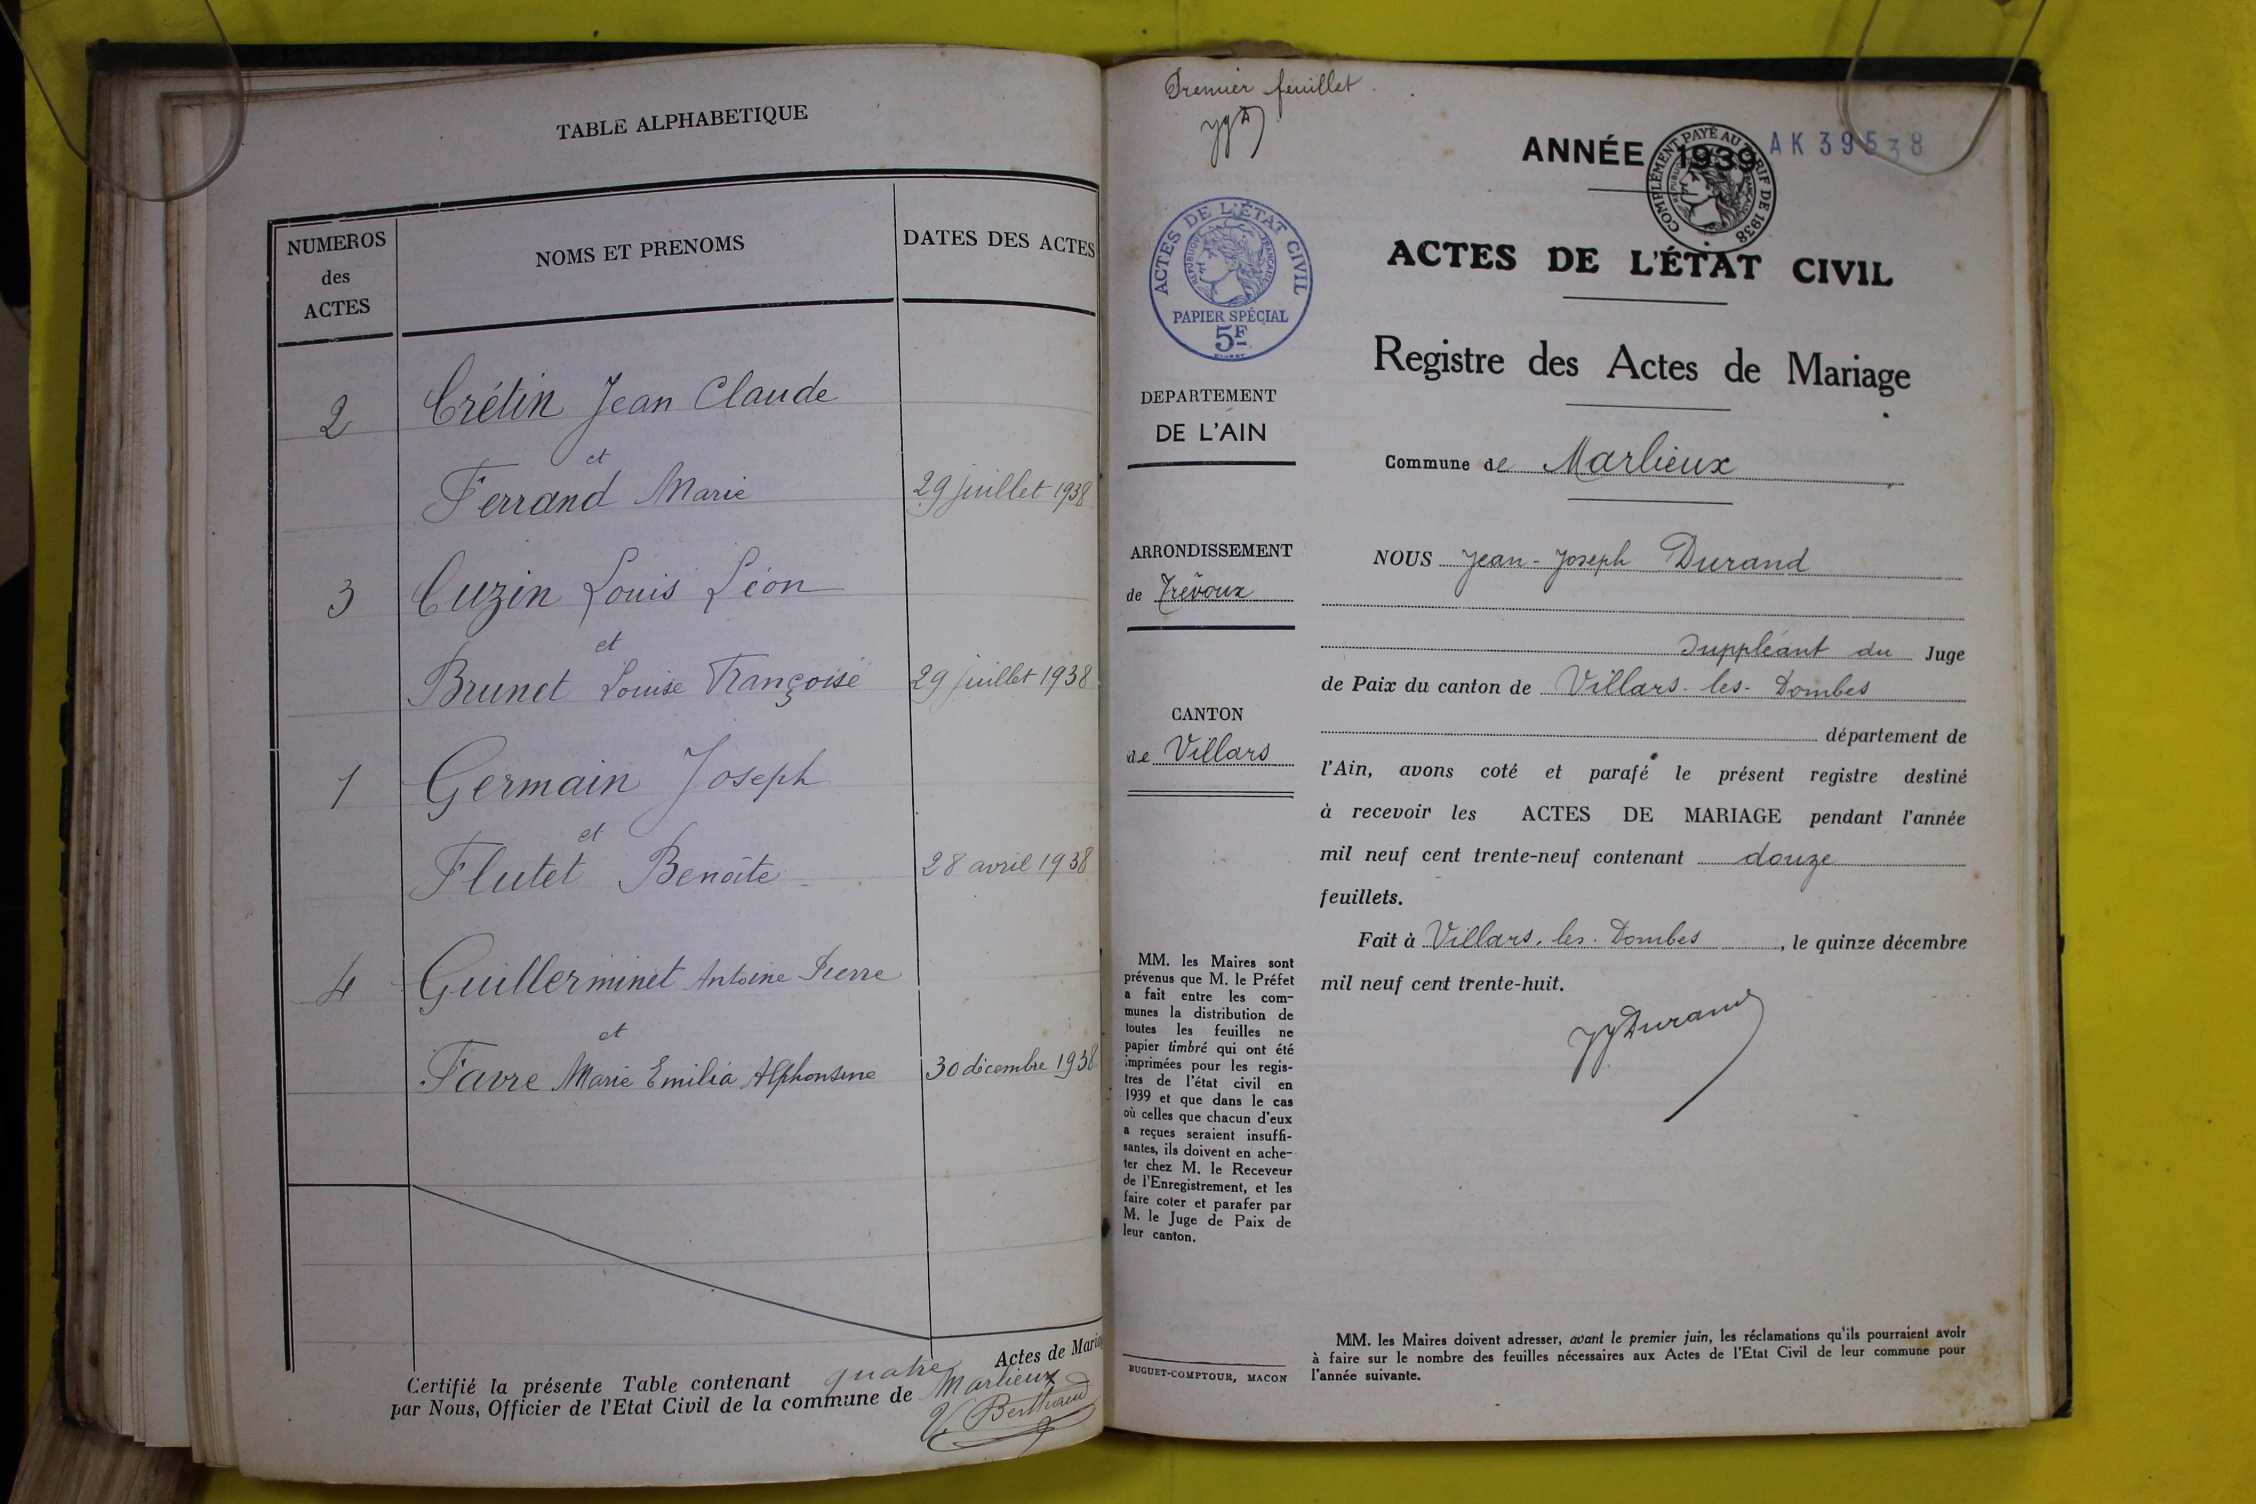 TABLE ALPHABETIQUE
NUMEROS
des
ACTES
NOMS ET PRENOMS
DATES DES ACTES
2 Crétin Jean Claude
et
Ferrand Marie 29 juillet 1938
3 Cuzin Louis Léon
et
Brunet Louise Françoise 29 juillet 1938
1 Germain Joseph
et
Flutet Benoîte 28 avril 1938
4 Guillerminet Antoine Pierre
et
Favre Marie Emilia Alphonsine 30 décembre 1938
Certifié la présente Table contenant quatre Actes de Maria
par Nous, Officier de l'Etat Civil de la commune de Marlieux
Premier feuillet
ANNÉE 1939
COMPLÉMENT PAYÉ AU TARIF DE 1938
AK 39538
ACTES DE L'ÉTAT CIVIL
RÉPUBLIQUE FRANÇAISE
PAPIER SPÉCIAL
5F
DEPARTEMENT
DE L'AIN
ARRONDISSEMENT
de Trévoux
CANTON
de Villars
MM. les Maires sont
prévenus que M. le Préfet
a fait entre les com-
munes la distribution de
toutes les feuilles ne
papier timbré qui ont été
imprimées pour les regis-
tres de l'état civil en
1939 et que dans le cas
où celles que chacun d'eux
a reçues seraient insuffi-
santes, ils doivent en ache-
ter chez M. le Receveur
de l'Enregistrement, et les
faire coter et parafer par
M. le Juge de Paix de
leur canton.
BUGUET-COMPTOUR, MACON
ACTES DE L'ÉTAT CIVIL
Registre des Actes de Mariage
Commune de Marlieux
NOUS Jean-Joseph Durand
Suppléant du Juge
de Paix du canton de Villars-les-Dombes
département de
l'Ain, avons coté et parafé le présent registre destiné
à recevoir les ACTES DE MARIAGE pendant l'année
mil neuf cent trente-neuf contenant douze
feuillets.
Fait à Villars-les-Dombes, le quinze décembre
mil neuf cent trente-huit.
JJDurand
MM. les Maires doivent adresser, avant le premier juin, les réclamations qu'ils pourraient avoir
à faire sur le nombre des feuilles nécessaires aux Actes de l'Etat Civil de leur commune pour
l'année suivante.